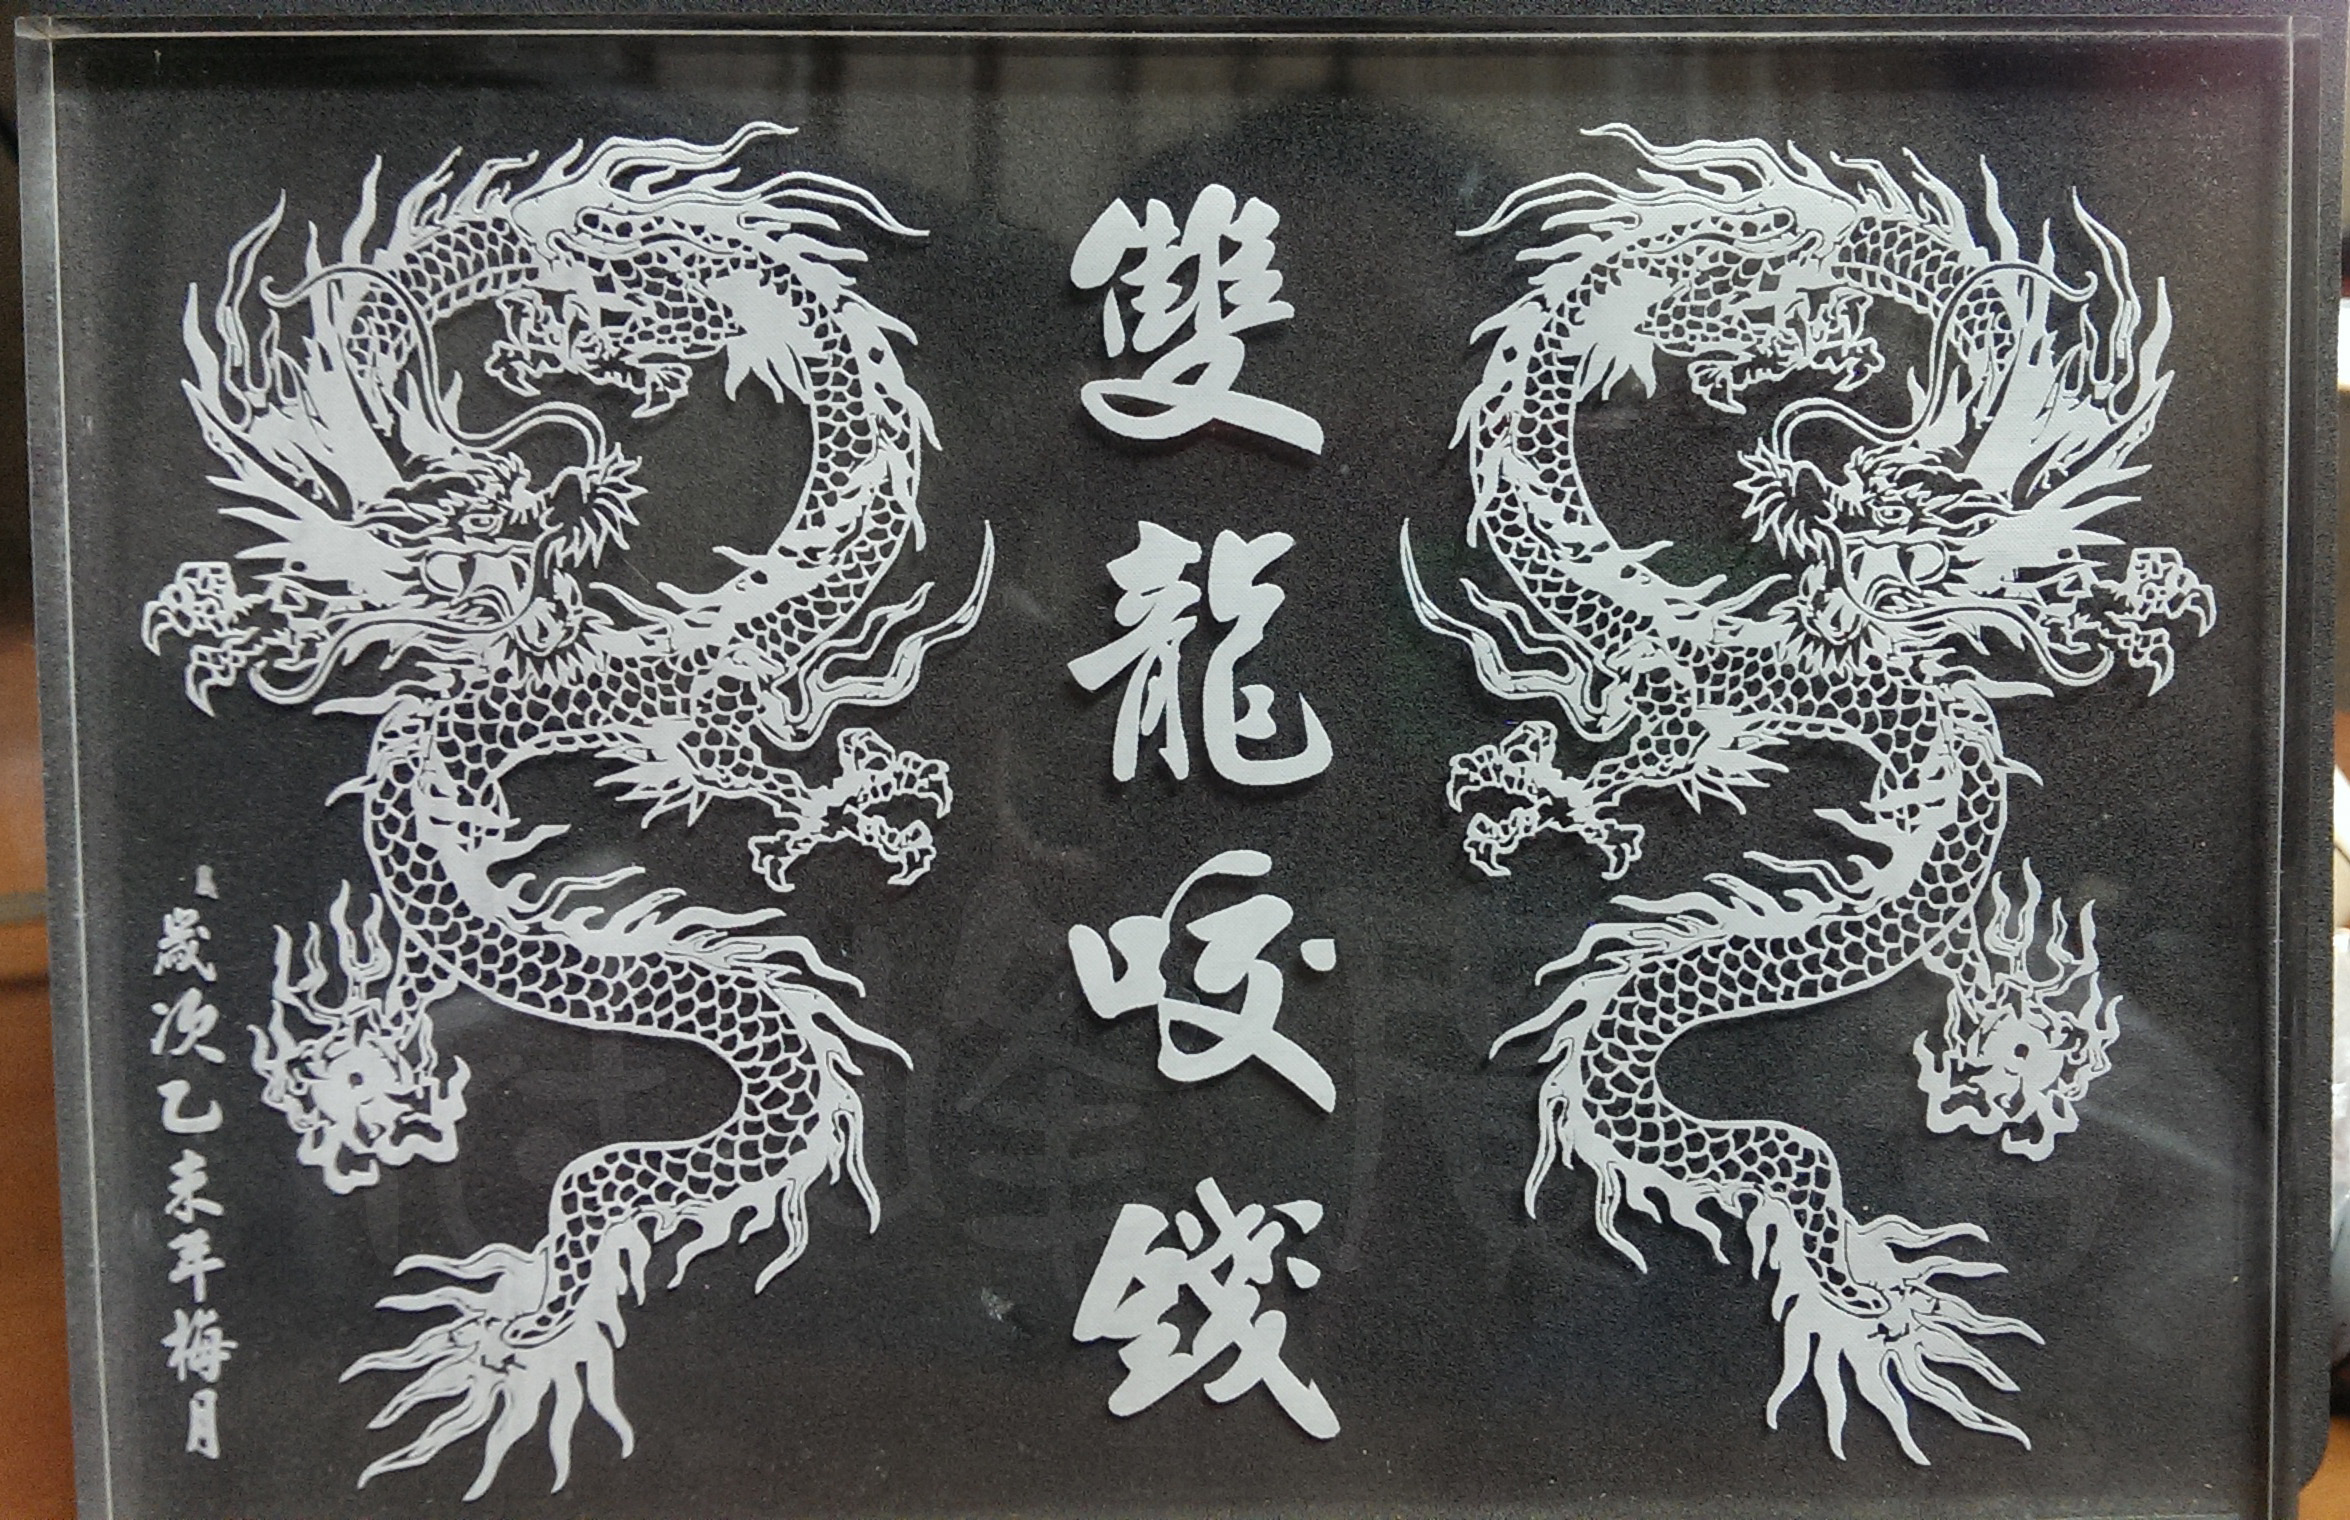 雙龍咬錢
歲次乙未年梅月